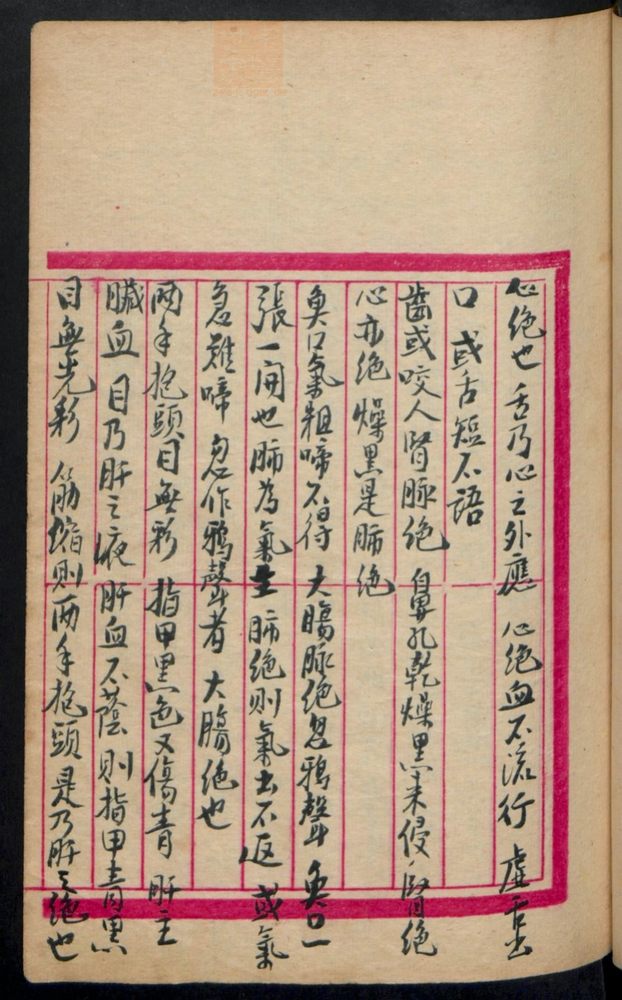 心絶也 舌乃心之外應 心絶血不流行 虛舌出
口 或舌短不語
齒或咬人腎脉絶 鼻孔乾燥黒來侵 腎絶
心亦絶 燥黒是肺絶
魚口氣粗啼不得 大腸脉絶忽鴉聲 魚口一
張一閉也 肺為氣主 肺絶則氣出不返 或氣
急难啼 忽作鴉聲者 大腸絶也
两手抱頭目無彩 指甲黒色又傷青 肝主
臟血 目乃肝之液 肝血不蔭 則指甲青黒
目無光彩 筋縮則两手抱頭 是乃肝之絶也